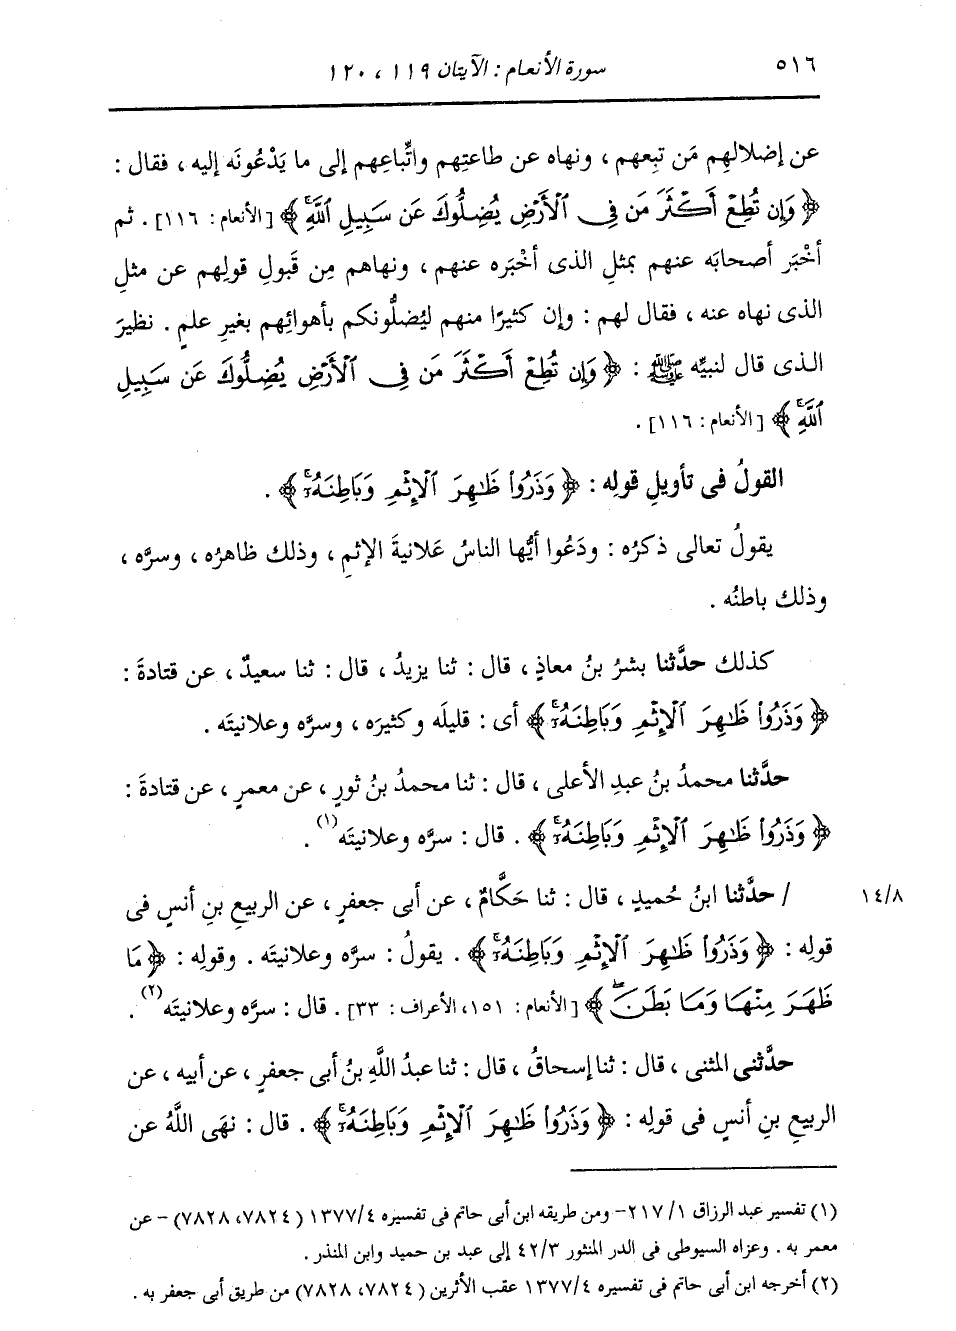 ٥١٦
سورة الأنعام : الآيتان ١١٩ ، ١٢٠
عن إضلالِهم مَن تبِعهم ، ونهاه عن طاعتِهم واتِّباعِهم إلى ما يَدْعُونَه إليه ، فقال :
﴿ وَإِن تُطِعْ أَكْثَرَ مَن فِى ٱلْأَرْضِ يُضِلُّوكَ عَن سَبِيلِ ٱللَّهِۚ ﴾ [الأنعام : ١١٦] . ثم
أخْبَر أصحابَه عنهم بمثلِ الذى أخْبَره عنهم ، ونهاهم مِن قَبولِ قولِهم عن مثلِ
الذى نهاه عنه ، فقال لهم : وإن كثيرًا منهم ليُضلُّونكم بأهوائِهم بغيرِ علمٍ . نظيرَ
الذى قال لنبيِّه ﷺ : ﴿ وَإِن تُطِعْ أَكْثَرَ مَن فِى ٱلْأَرْضِ يُضِلُّوكَ عَن سَبِيلِ
ٱللَّهِۚ ﴾ [الأنعام : ١١٦] .
القولُ فى تأويلِ قولِه : ﴿ وَذَرُوا۟ ظَٰهِرَ ٱلْإِثْمِ وَبَاطِنَهُۥٓۚ ﴾ .
يقولُ تعالى ذكرُه : ودَعُوا أيُّها الناسُ عَلانيةَ الإثمِ ، وذلك ظاهرُه ، وسرَّه ،
وذلك باطنُه .
كذلك حدَّثنا بشرُ بنُ معاذٍ ، قال : ثنا يزيدُ ، قال : ثنا سعيدٌ ، عن قتادةَ :
﴿ وَذَرُوا۟ ظَٰهِرَ ٱلْإِثْمِ وَبَاطِنَهُۥٓۚ ﴾ أى : قليلَه وكثيرَه ، وسرَّه وعلانيتَه .
حدَّثنا محمدُ بنُ عبدِ الأعلى ، قال : ثنا محمدُ بنُ ثورٍ ، عن معمرٍ ، عن قتادةَ :
﴿ وَذَرُوا۟ ظَٰهِرَ ٱلْإِثْمِ وَبَاطِنَهُۥٓۚ ﴾ . قال : سرَّه وعلانيتَه (١) .
١٤/٨ / حدَّثنا ابنُ حُميدٍ ، قال : ثنا حَكَّامٌ ، عن أبى جعفرٍ ، عن الربيعِ بنِ أنسٍ فى
قوله : ﴿ وَذَرُوا۟ ظَٰهِرَ ٱلْإِثْمِ وَبَاطِنَهُۥٓۚ ﴾ . يقولُ : سرَّه وعلانيتَه . وقولِه : ﴿ مَا
ظَهَرَ مِنْهَا وَمَا بَطَنَۖ ﴾ [الأنعام : ١٥١، الأعراف : ٣٣] . قال : سرَّه وعلانيتَه (٢) .
حدَّثنى المثنى ، قال : ثنا إسحاقُ ، قال : ثنا عبدُ اللَّهِ بنُ أبى جعفرٍ ، عن أبيه ، عن
الربيعِ بنِ أنسٍ فى قولِه : ﴿ وَذَرُوا۟ ظَٰهِرَ ٱلْإِثْمِ وَبَاطِنَهُۥٓۚ ﴾ . قال : نهَى اللَّهُ عن
(١) تفسير عبد الرزاق ١/ ٢١٧- ومن طريقه ابن أبى حاتم فى تفسيره ١٣٧٧/٤ (٧٨٢٤، ٧٨٢٨) - عن
معمر به . وعزاه السيوطى فى الدر المنثور ٤٢/٣ إلى عبد بن حميد وابن المنذر .
(٢) أخرجه ابن أبى حاتم فى تفسيره ١٣٧٧/٤ عقب الأثرين (٧٨٢٤، ٧٨٢٨) من طريق أبى جعفر به .